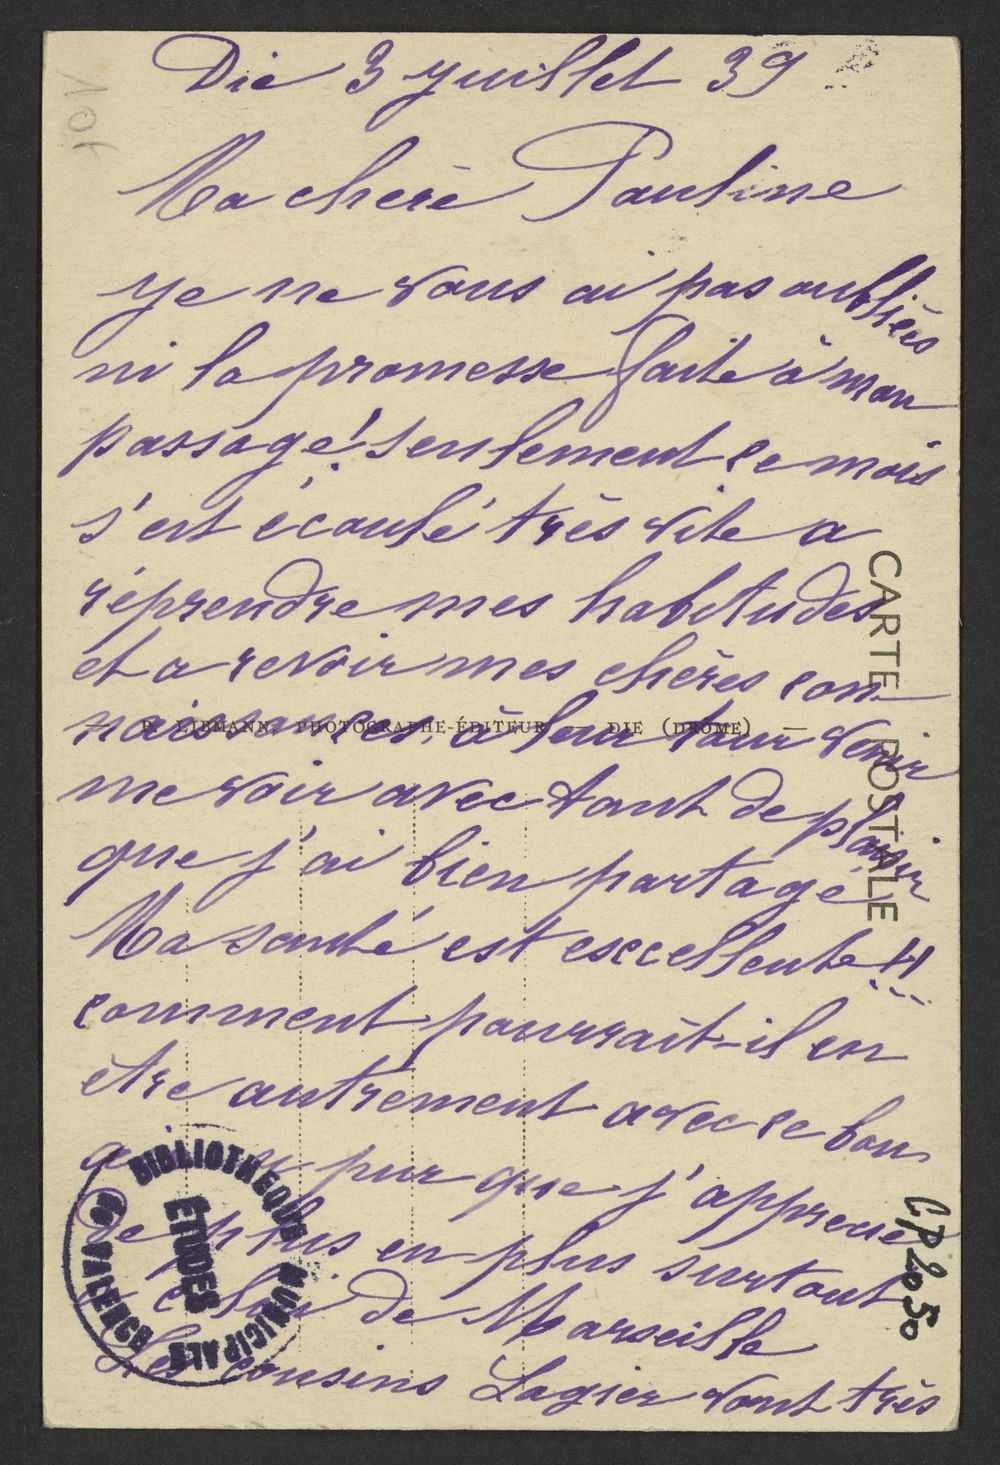 Die 3 juillet 39
Ma chère Pauline
je ne vous ai pas oubliées
ni la promesse faite à mon
passage! seulement ce mois
s'est écoulé très vite a
réprendre mes habitudes
et a revoir mes chères con-
naissances, à leur tour venir
me voir avec tant de plaisir
que j'ai bien partagé
Ma santé est excellente!!
comment pourrait-il en
être autrement avec ce bon
pur que j'apprecie
de plus en plus surtout
celui de Marseille
Les cousins Lagier vont très
CARTE POSTALE
— E. LIBMANN, PHOTOGRAPHE-ÉDITEUR — DIE (DROME) —
BIBLIOTHEQUE MUNICIPALE
de VALENCE
ÉTUDES
CP2050
101